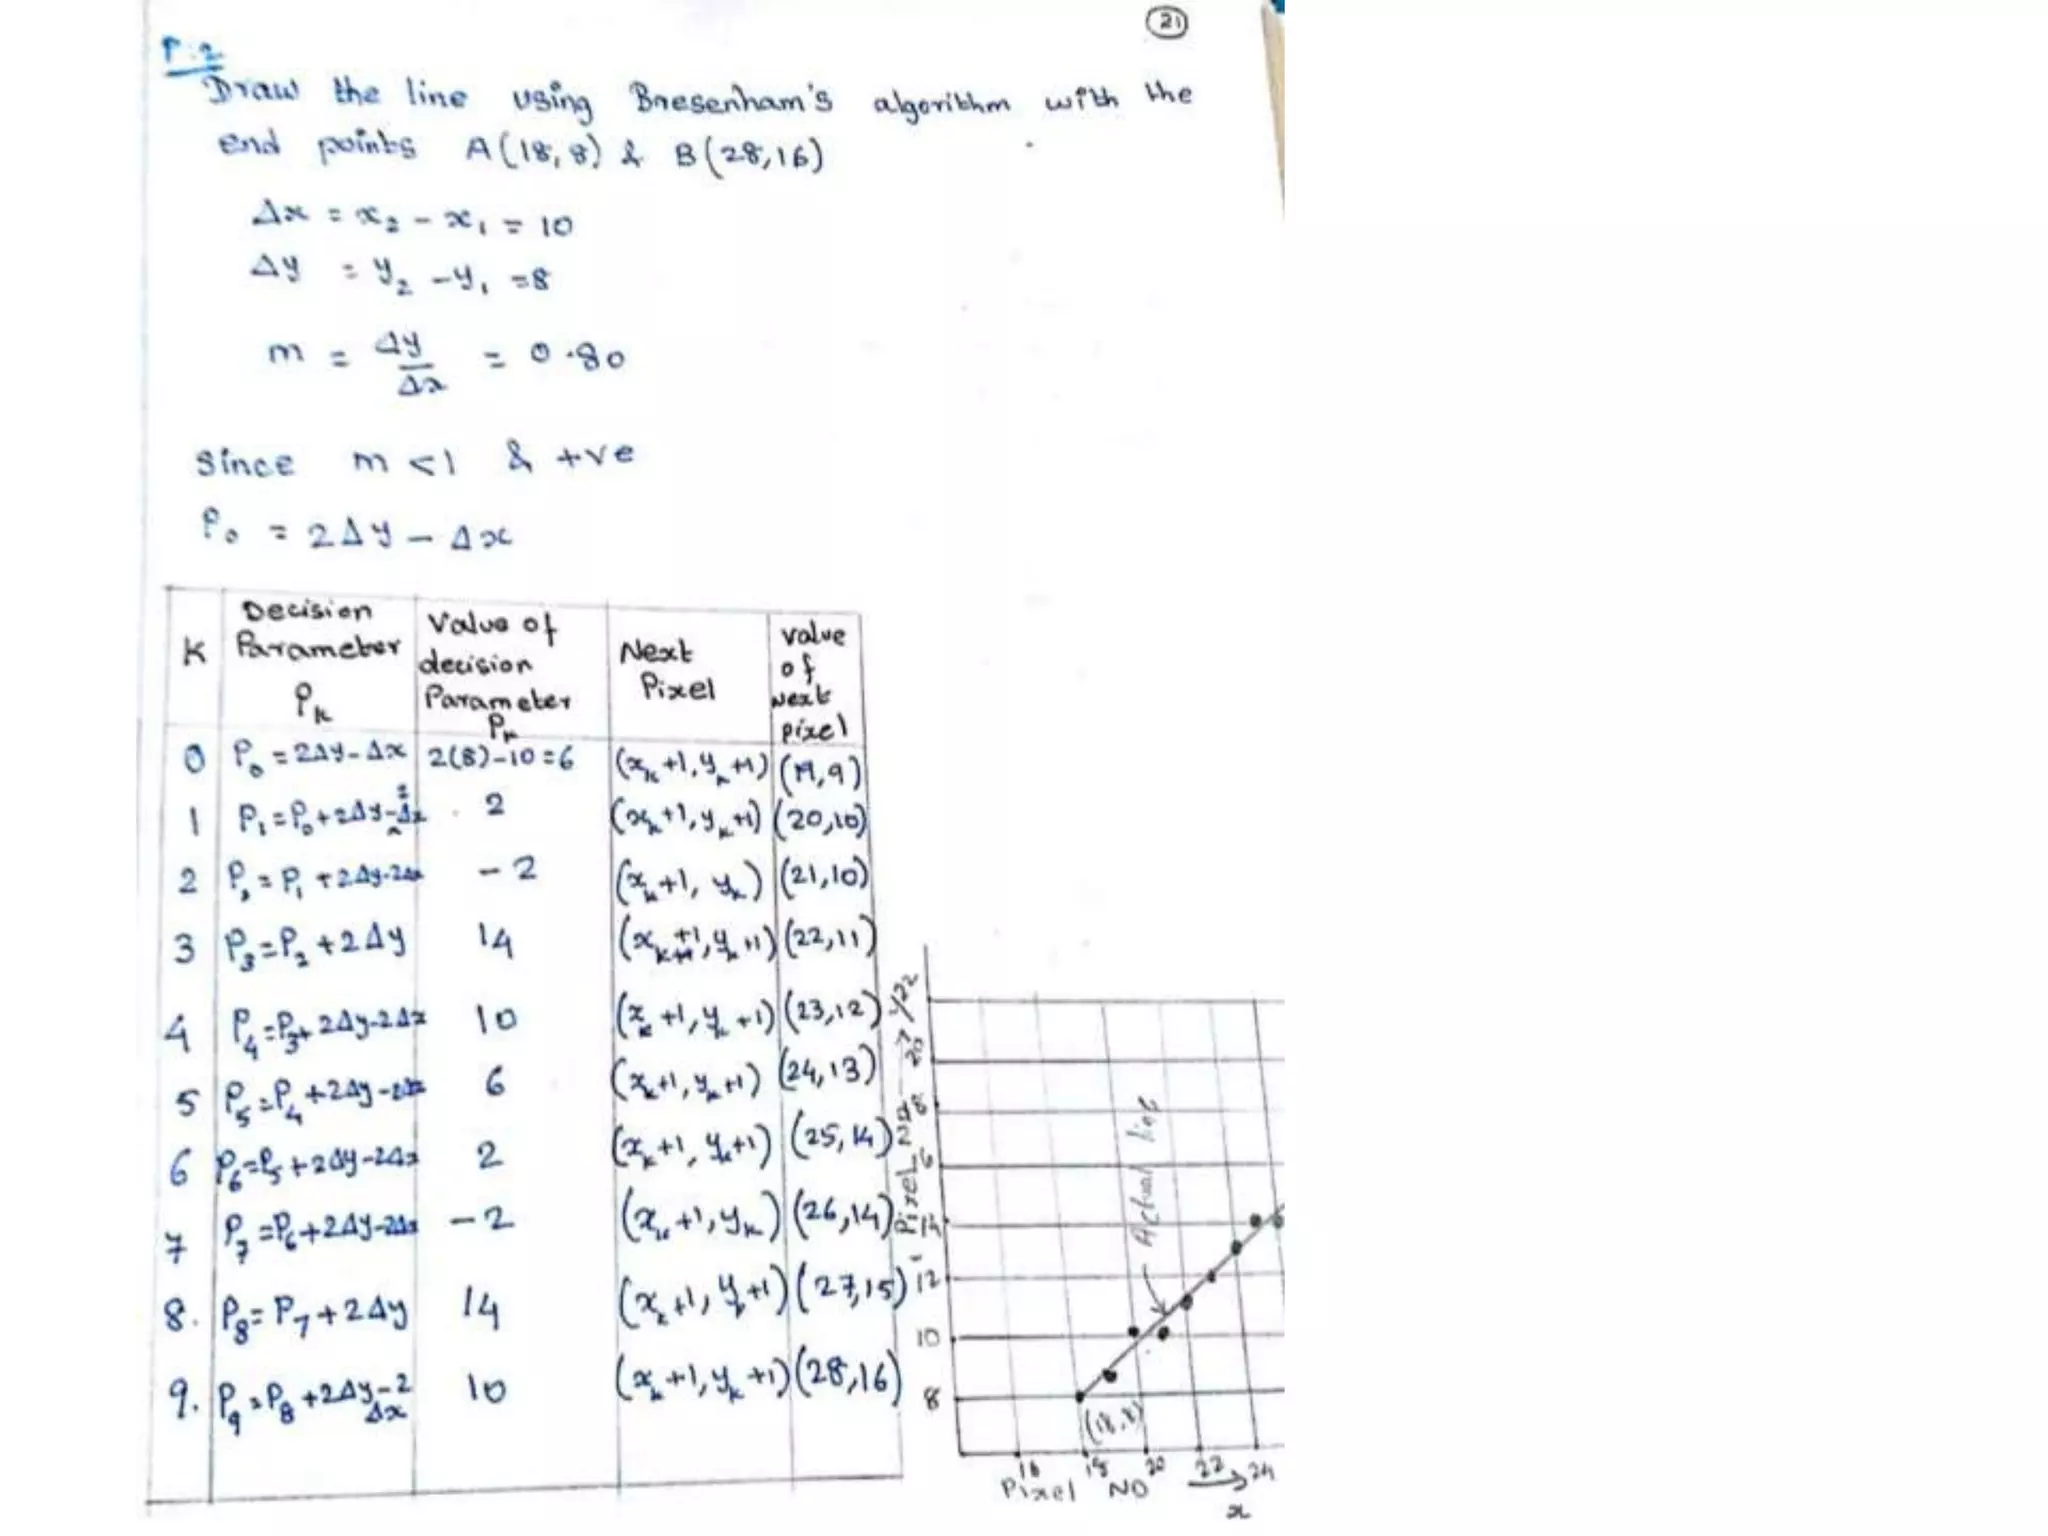 21
P.2
Draw the line using Bresenham's algorithm with the
end points A(18, 8) & B(28,16)
Δx = x₂ - x₁ = 10
Δy = y₂ - y₁ = 8
m = Δy/Δx = 0.80
Since m < 1 & +ve
P₀ = 2Δy - Δx
K | Decision Parameter Pₖ | Value of decision Parameter Pₖ | Next Pixel | value of Next pixel
0 | P₀ = 2Δy - Δx | 2(8)-10=6 | (xₖ+1, yₖ+1) | (19,9)
1 | P₁ = P₀ + 2Δy - 2Δx | 2 | (xₖ+1, yₖ+1) | (20,10)
2 | P₂ = P₁ + 2Δy - 2Δx | -2 | (xₖ+1, yₖ) | (21,10)
3 | P₃ = P₂ + 2Δy | 14 | (xₖ+1, yₖ+1) | (22,11)
4 | P₄ = P₃ + 2Δy - 2Δx | 10 | (xₖ+1, yₖ+1) | (23,12)
5 | P₅ = P₄ + 2Δy - 2Δx | 6 | (xₖ+1, yₖ+1) | (24,13)
6 | P₆ = P₅ + 2Δy - 2Δx | 2 | (xₖ+1, yₖ+1) | (25,14)
7 | P₇ = P₆ + 2Δy - 2Δx | -2 | (xₖ+1, yₖ) | (26,14)
8. | P₈ = P₇ + 2Δy | 14 | (xₖ+1, yₖ+1) | (27,15)
9. | P₉ = P₈ + 2Δy - 2Δx | 10 | (xₖ+1, yₖ+1) | (28,16)
Actual line
14
12
10
8
(18,8)
16 18 20 22 24
Pixel NO
x